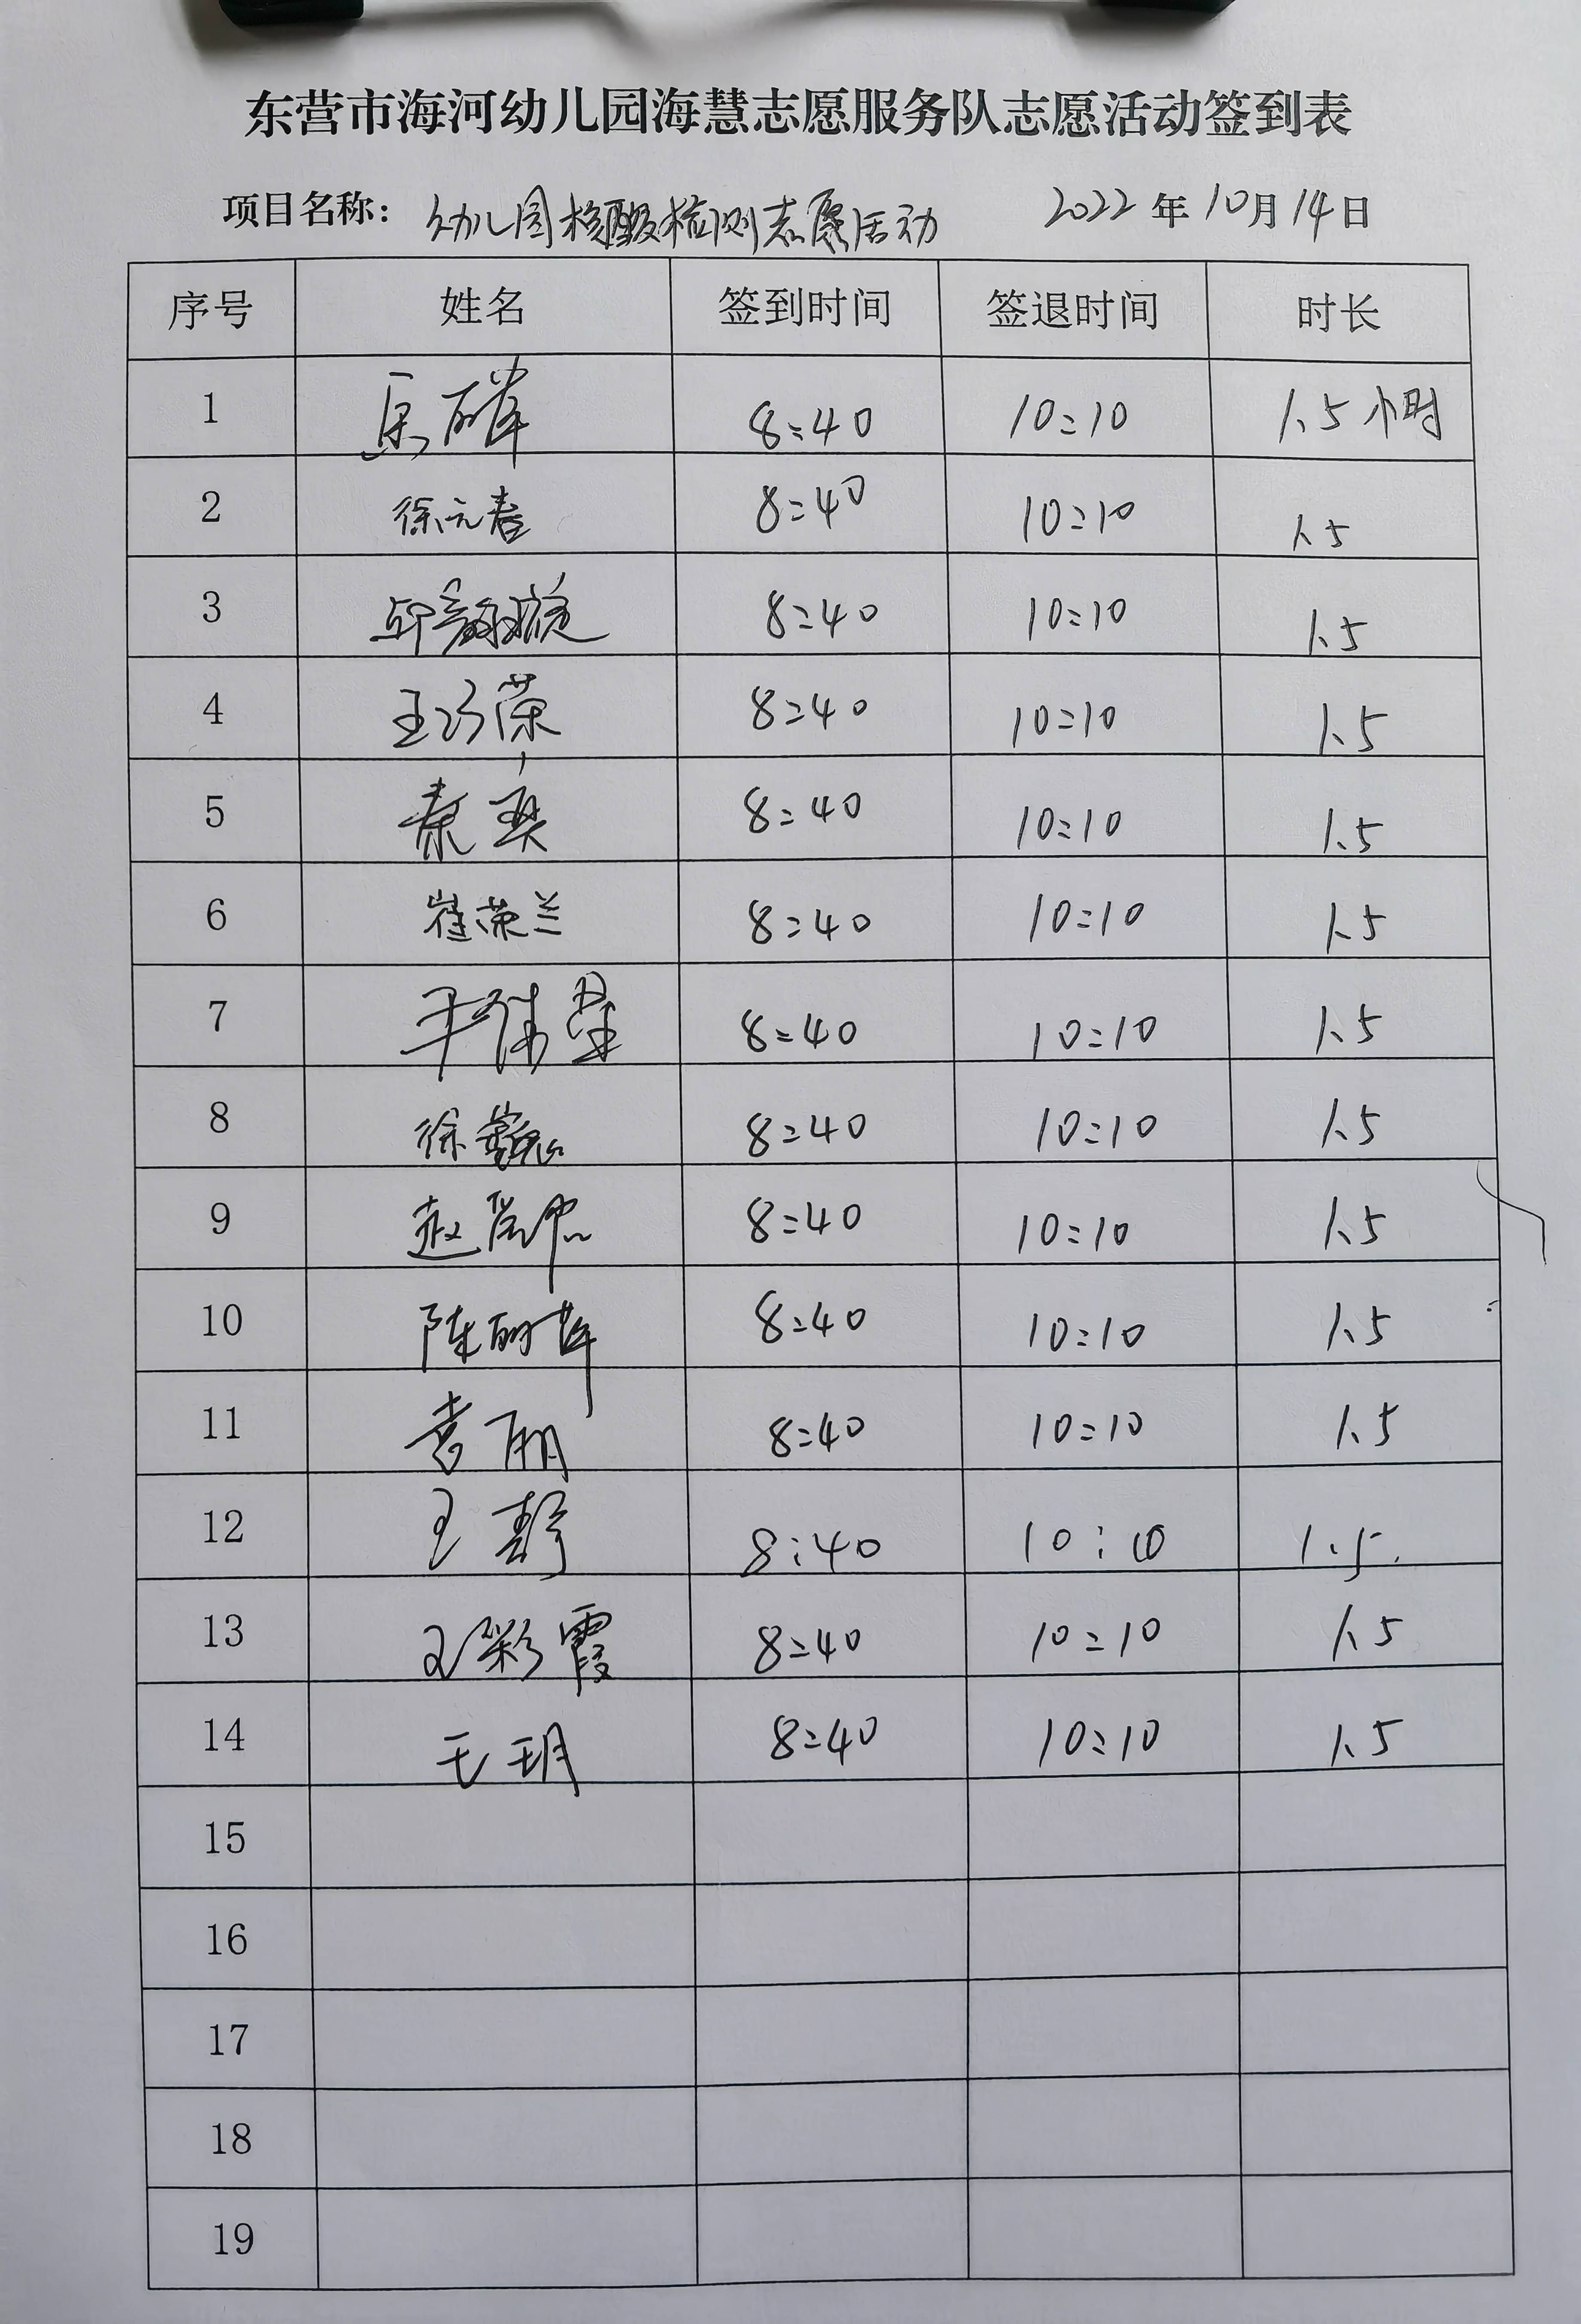 东营市海河幼儿园海慧志愿服务队志愿活动签到表
项目名称: 幼儿园核酸检测志愿活动 2022年10月14日
序号 姓名 签到时间 签退时间 时长
1 8:40 10:10 1.5小时
2 徐元春 8:40 10:10 1.5
3 8:40 10:10 1.5
4 王巧荣 8:40 10:10 1.5
5 秦 8:40 10:10 1.5
6 崔荣兰 8:40 10:10 1.5
7 8:40 10:10 1.5
8 徐 8:40 10:10 1.5
9 赵 8:40 10:10 1.5
10 陈 8:40 10:10 1.5
11 袁丽 8:40 10:10 1.5
12 王静 8:40 10:10 1.5
13 王彩霞 8:40 10:10 1.5
14 王玥 8:40 10:10 1.5
15
16
17
18
19